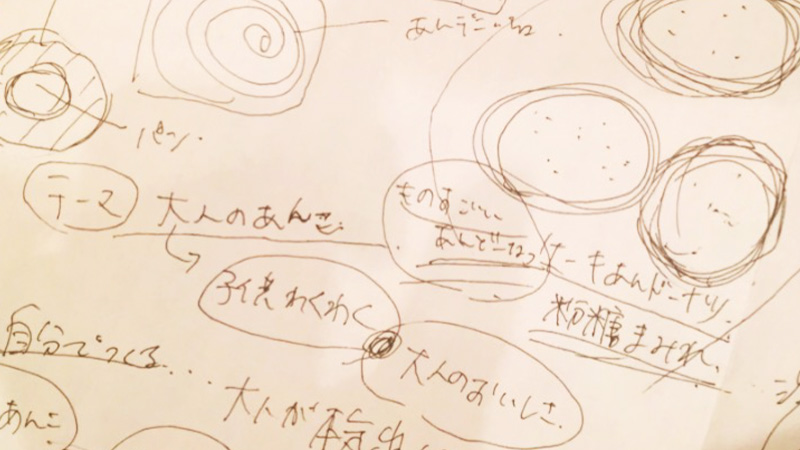 あんデニッシュ
パン
テーマ
大人のあんこ
ものすごい
あんどーなつ
ケーキあんドーナツ
粉糖まみれ
子供わくわく
大人のおいしさ
自分でつくる...
あんこ
大人が本気出